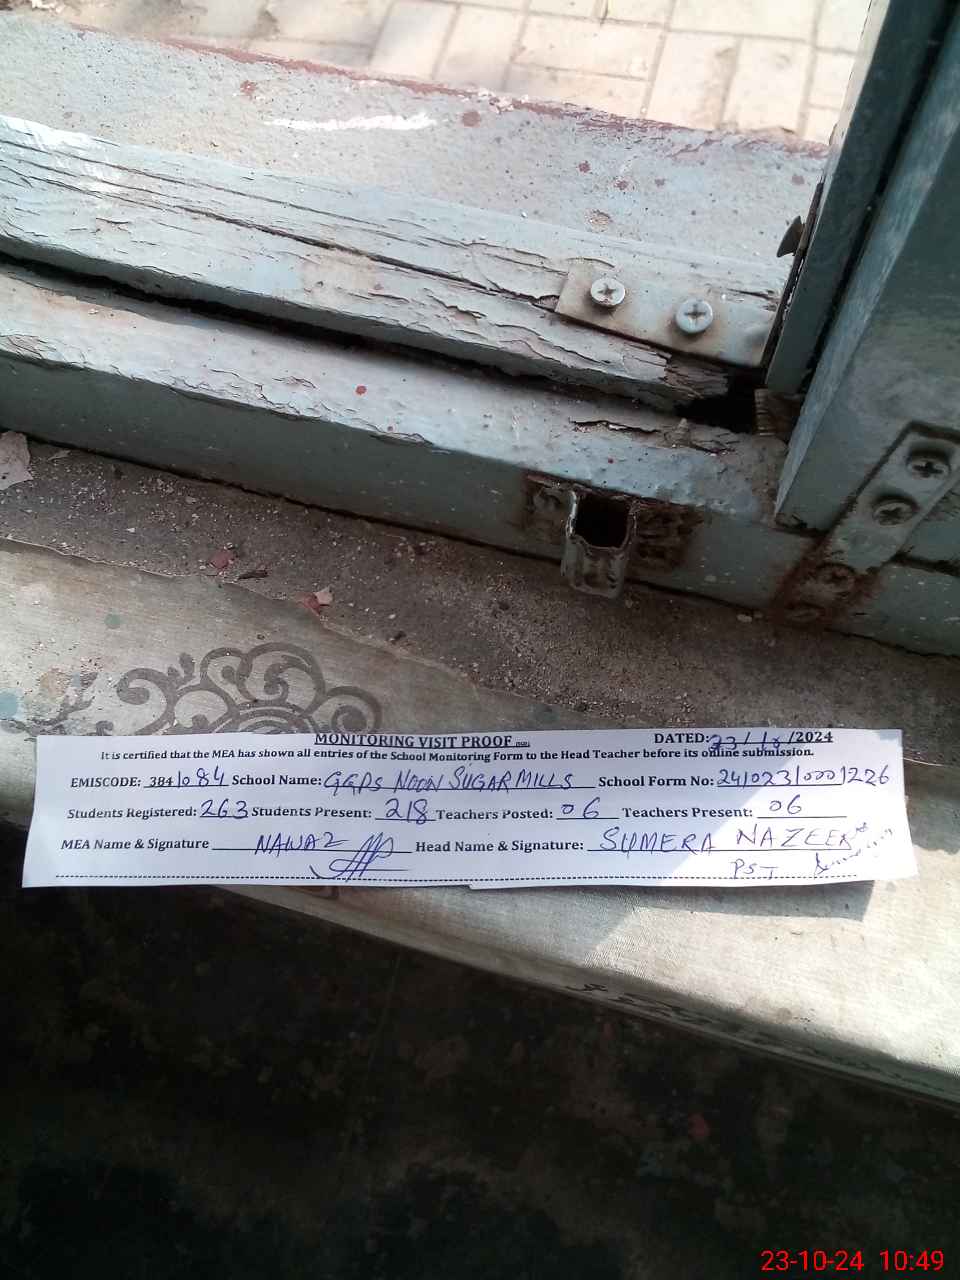 MONITORING VISIT PROOF
DATED: 23/10/2024
It is certified that the MEA has shown all entries of the School Monitoring Form to the Head Teacher before its online submission.
EMISCODE: 38410084 School Name: GGPS NOON SUGAR MILLS School Form No: 241023/0001226
Students Registered: 263 Students Present: 218 Teachers Posted: 06 Teachers Present: 06
MEA Name & Signature NAWAZ Head Name & Signature: SUMERA NAZEER
PST
23-10-24 10:49